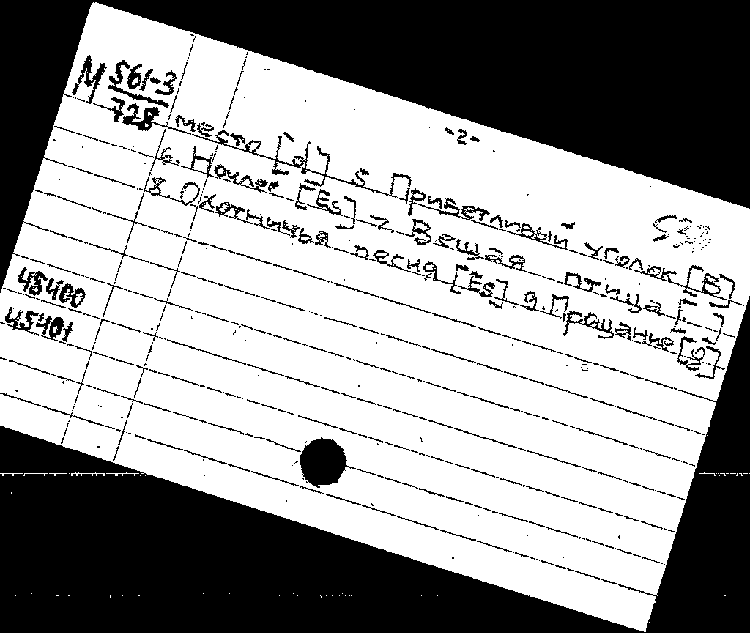 М 561-3
728
-2-
место [d] 5 Приветливый уголок [B]
6. Ночлег [Es] 7 Вещая птица [..]
8. Охотничья песня [Es] 9. Прощание [B]
45400
45401